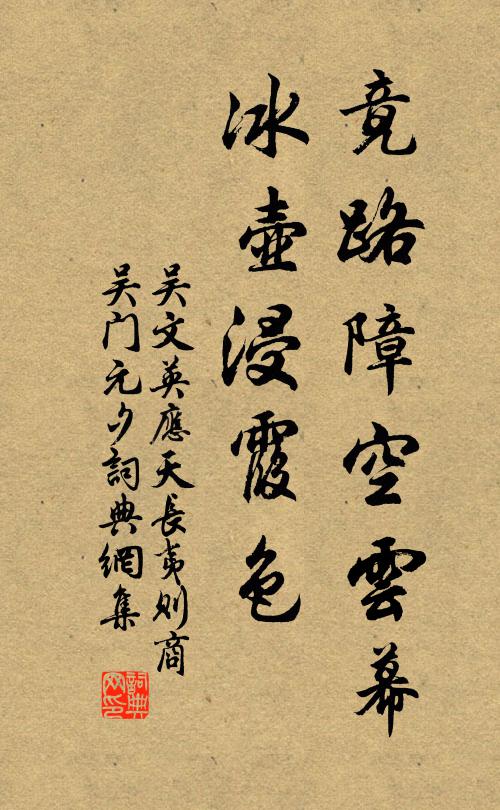 竟路障空雲幕
冰壺浸霞色
吳文英應天長夷則商
吳門元夕詞典網集
詞典网印